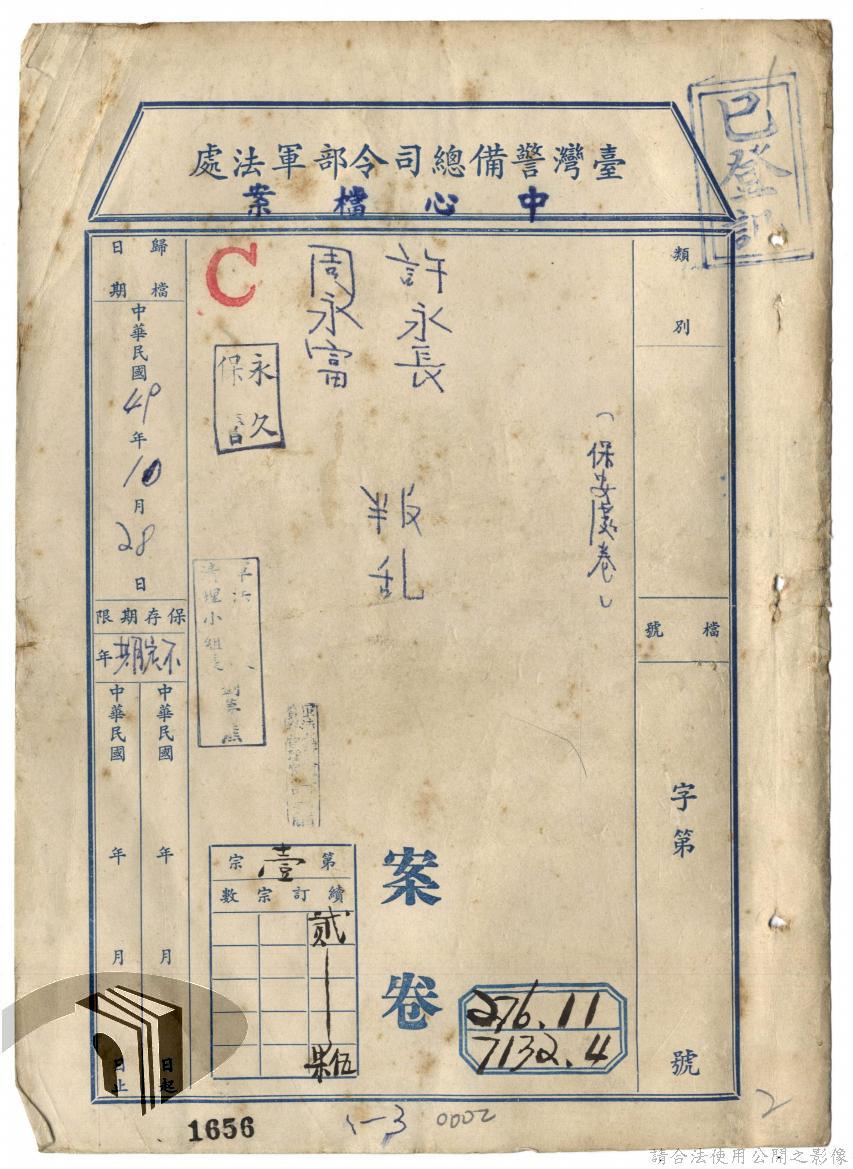 臺灣警備總司令部軍法處
中心檔案
已登記
類別
檔號
字第
號
(保安處卷)
許永長
周永富
叛乱
案卷
276.11
7132.4
C
永久
保
第壹宗
續訂宗數
貳
伍
清理小組
歸檔日期
中華民國49年10月28日
保存期限
不定期年
中華民國 年 月 日起
中華民國 年 月 日止
1656
1-3
0002
2
請合法使用公開之影像